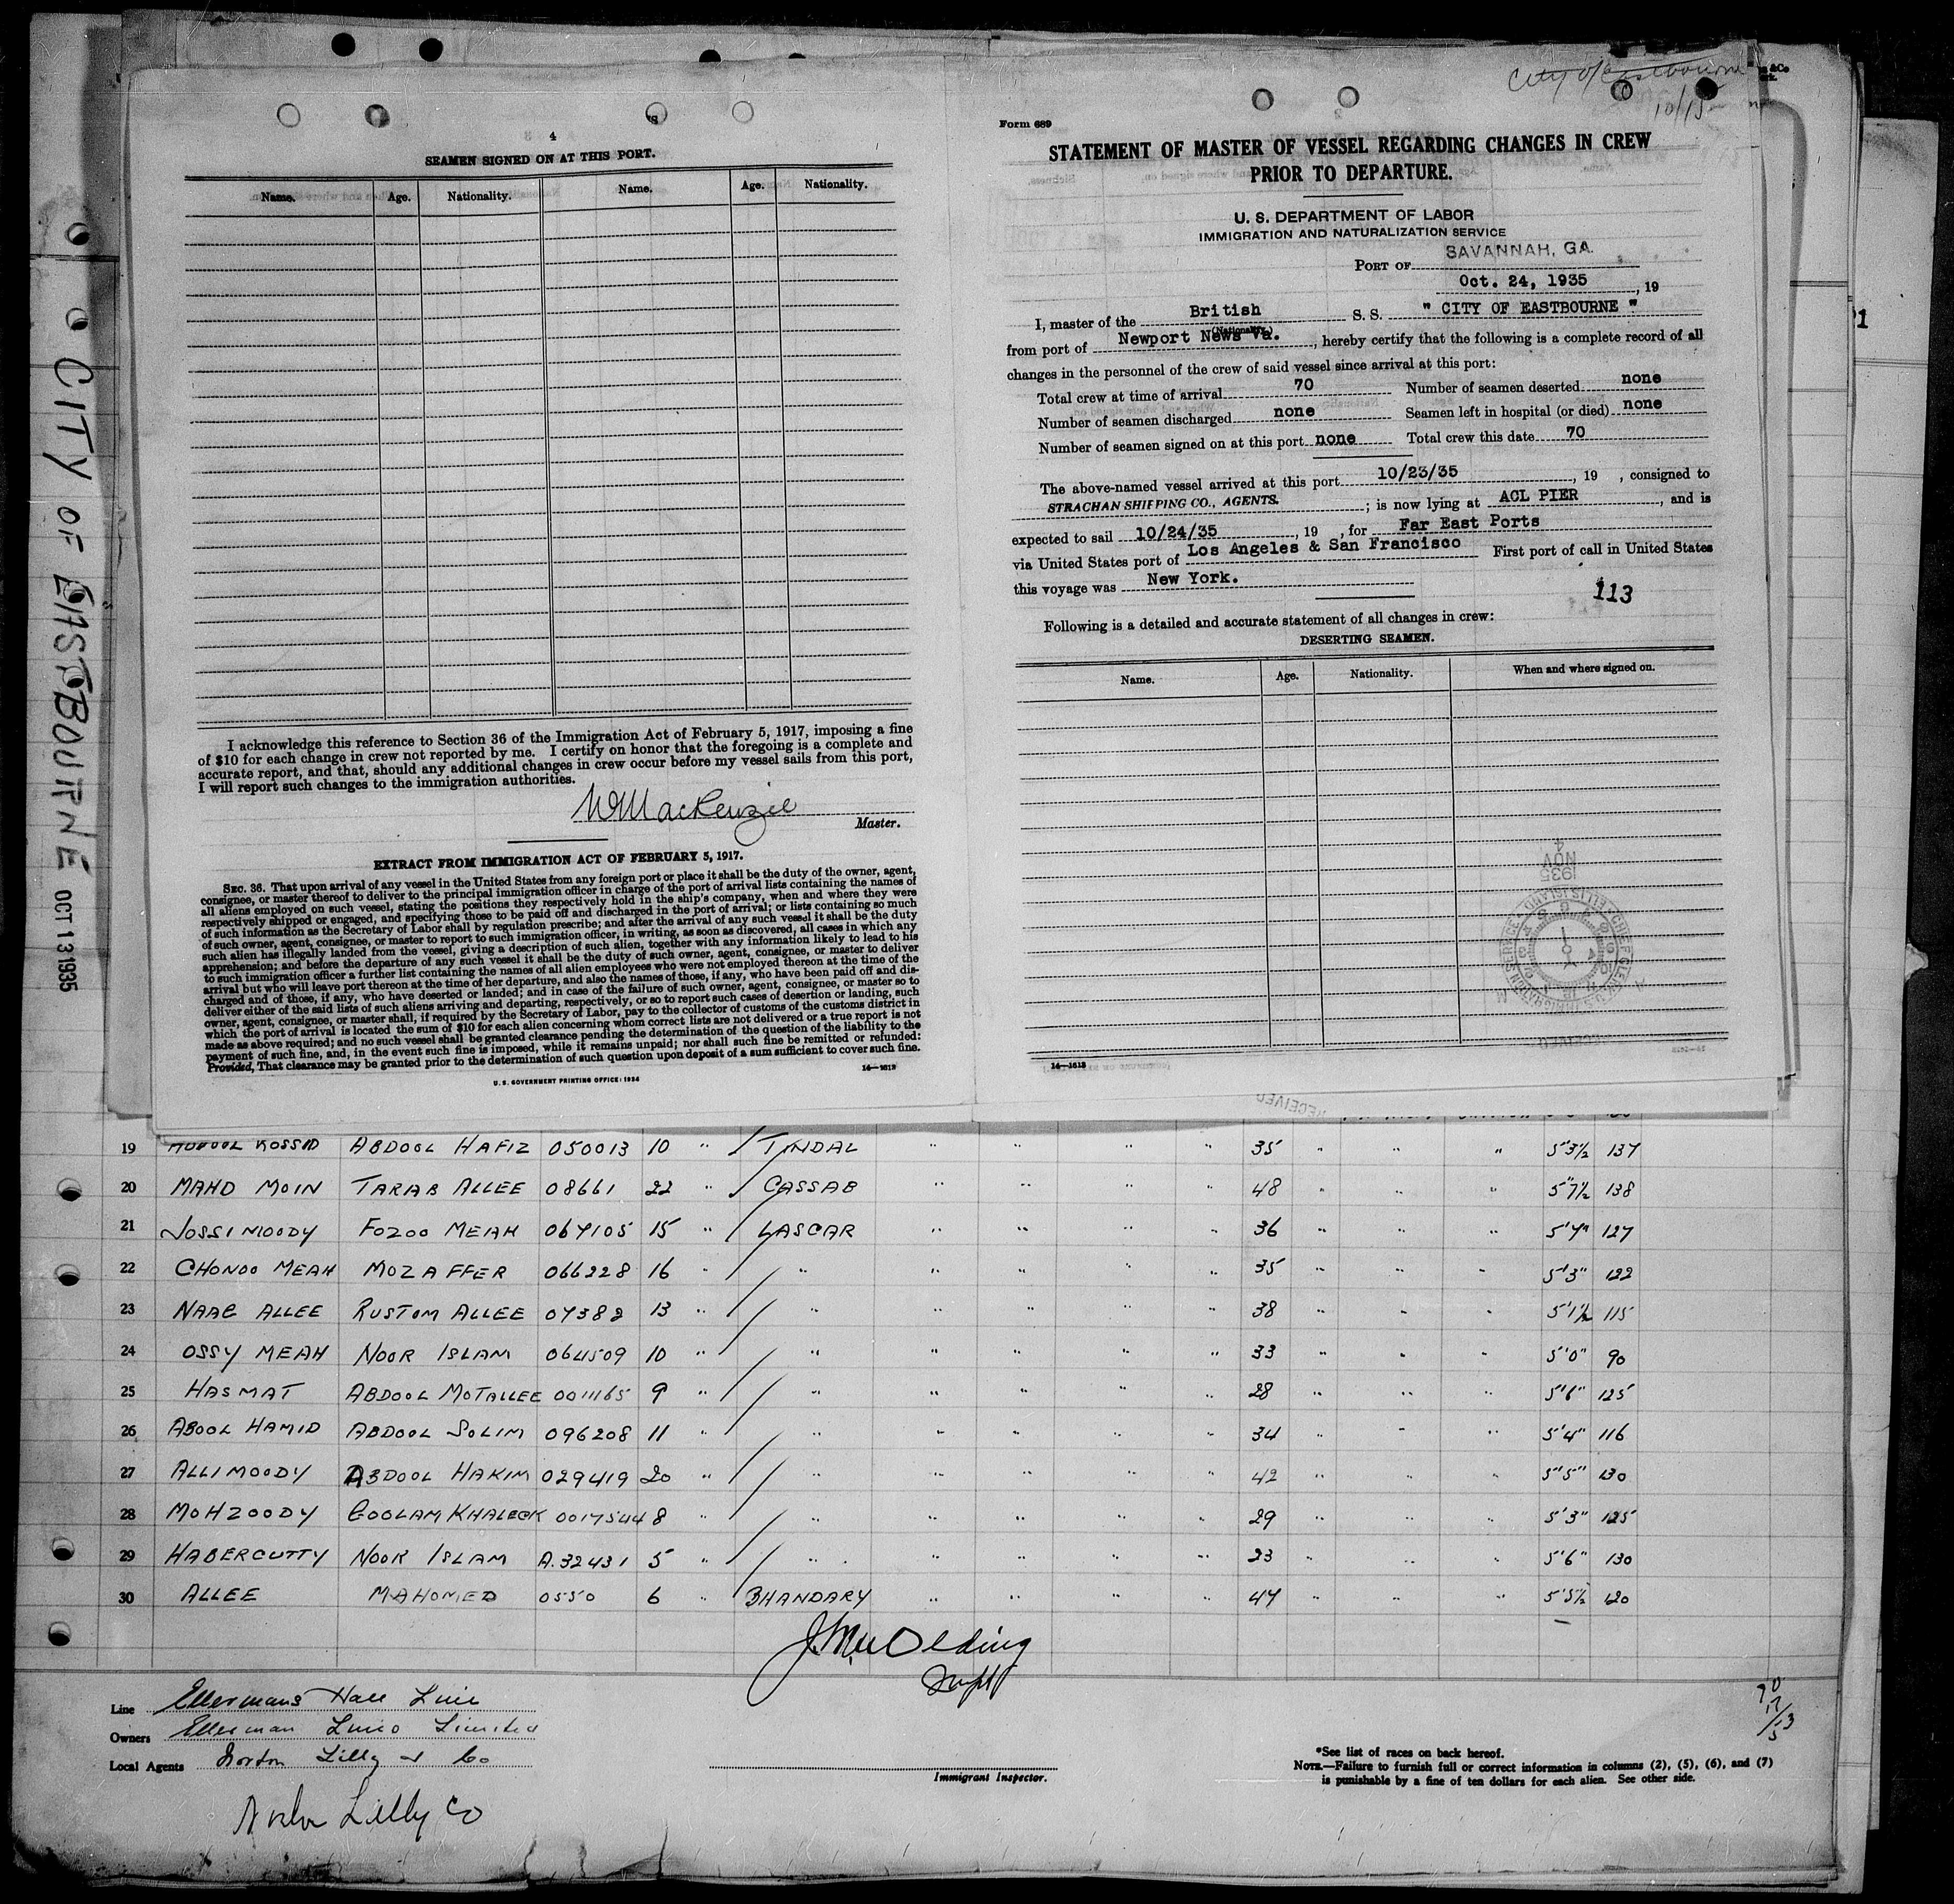 CITY OF EASTBOURNE OCT 13 1935
4
SEAMEN SIGNED ON AT THIS PORT.
Name. Age. Nationality. Name. Age. Nationality.
I acknowledge this reference to Section 36 of the Immigration Act of February 5, 1917, imposing a fine
of $10 for each change in crew not reported by me. I certify on honor that the foregoing is a complete and
accurate report, and that, should any additional changes in crew occur before my vessel sails from this port,
I will report such changes to the immigration authorities.
W MacKenzie
Master.
EXTRACT FROM IMMIGRATION ACT OF FEBRUARY 5, 1917.
SEC. 36. That upon arrival of any vessel in the United States from any foreign port or place it shall be the duty of the owner, agent,
consignee, or master thereof to deliver to the principal immigration officer in charge of the port of arrival lists containing the names of
all aliens employed on such vessel, stating the positions they respectively hold in the ship's company, when and where they were
respectively shipped or engaged, and specifying those to be paid off and discharged in the port of arrival; or lists containing so much
of such information as the Secretary of Labor shall by regulation prescribe; and after the arrival of any such vessel it shall be the duty
of such owner, agent, consignee, or master to report to such immigration officer, in writing, as soon as discovered, all cases in which any
such alien has illegally landed from the vessel, giving a description of such alien, together with any information likely to lead to his
apprehension; and before the departure of any such vessel it shall be the duty of such owner, agent, consignee, or master to deliver
to such immigration officer a further list containing the names of all alien employees who were not employed thereon at the time of the
arrival but who will leave port thereon at the time of her departure, and also the names of those, if any, who have been paid off and dis-
charged and of those, if any, who have deserted or landed; and in case of the failure of such owner, agent, consignee, or master so to
deliver either of the said lists of such aliens arriving and departing, respectively, or so to report such cases of desertion or landing, such
owner, agent, consignee, or master shall, if required by the Secretary of Labor, pay to the collector of customs of the customs district in
which the port of arrival is located the sum of $10 for each alien concerning whom correct lists are not delivered or a true report is not
made as above required; and no such vessel shall be granted clearance pending the determination of the question of the liability to the
payment of such fine, and, in the event such fine is imposed, while it remains unpaid; nor shall such fine be remitted or refunded:
Provided, That clearance may be granted prior to the determination of such question upon deposit of a sum sufficient to cover such fine.
U. S. GOVERNMENT PRINTING OFFICE: 1934 14—1613
City of Eastbourne
10/13
Form 689
STATEMENT OF MASTER OF VESSEL REGARDING CHANGES IN CREW
PRIOR TO DEPARTURE.
U. S. DEPARTMENT OF LABOR
IMMIGRATION AND NATURALIZATION SERVICE
PORT OF SAVANNAH, GA.
Oct. 24, 1935, 19
I, master of the British S. S. " CITY OF EASTBOURNE "
(Nationality)
from port of Newport News Va., hereby certify that the following is a complete record of all
changes in the personnel of the crew of said vessel since arrival at this port:
Total crew at time of arrival 70 Number of seamen deserted none
Number of seamen discharged none Seamen left in hospital (or died) none
Number of seamen signed on at this port none Total crew this date 70
The above-named vessel arrived at this port 10/23/35, 19 , consigned to
STRACHAN SHIPPING CO., AGENTS. ; is now lying at ACL PIER, and is
expected to sail 10/24/35, 19 , for Far East Ports
via United States port of Los Angeles & San Francisco First port of call in United States
this voyage was New York.
113
Following is a detailed and accurate statement of all changes in crew:
DESERTING SEAMEN.
Name. Age. Nationality. When and where signed on.
1935 NOV 4
14—1613
RECEIVED
19 ABDOOL ROSSID ABDOOL HAFIZ 050013 10 " TINDAL " " " " 35 " " " 5'3½ 137
20 MAHD MOIN TARAB ALLEE 08661 22 " CASSAB " " " " 48 " " " 5'7½ 138
21 JOSSIMOODY FOZOO MEAH 067105 15 " LASCAR " " " " 36 " " " 5'7" 127
22 CHONOO MEAH MOZAFFER 066228 16 " " " " " " 35 " " " 5'3" 122
23 NAAB ALLEE RUSTOM ALLEE 07382 13 " " " " " " 38 " " " 5'1½ 115
24 OSSY MEAH NOOR ISLAM 064509 10 " " " " " " 33 " " " 5'0" 90
25 HASMAT ABDOOL MOTALLEE 0011165 9 " " " " " " 28 " " " 5'6" 125
26 ABOOL HAMID ABDOOL SOLIM 096208 11 " " " " " " 34 " " " 5'4" 116
27 ALLIMOODY ABDOOL HAKIM 029419 20 " " " " " " 42 " " " 5'5" 130
28 MOHZOODY GOOLAM KHALECK 0017544 8 " " " " " " 29 " " " 5'3" 125
29 HABERCUTTY NOOR ISLAM A.32431 5 " " " " " " 23 " " " 5'6" 130
30 ALLEE MAHOMED 0550 6 " BHANDARY " " " " 47 " " " 5'5½ 120
Line Ellermans Hall Line
Owners Ellerman Lines Limited
Local Agents Norton Lilly & Co
Norton Lilly Co
Immigrant Inspector.
70
17
53
*See list of races on back hereof.
NOTE.—Failure to furnish full or correct information in columns (2), (5), (6), and (7)
is punishable by a fine of ten dollars for each alien. See other side.